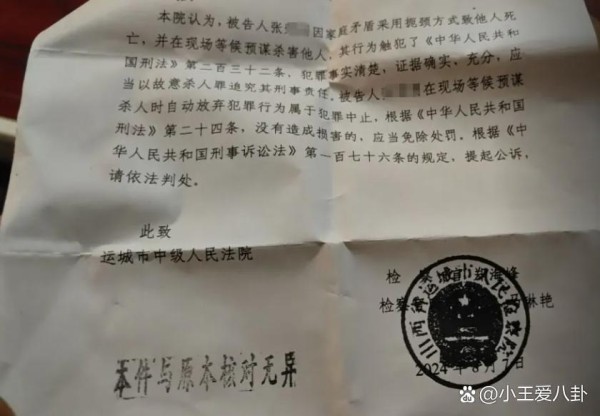 本院认为,被告人张 因家庭矛盾采用扼颈方式致他人死
亡,并在现场等候预谋杀害他人,其行为触犯了《中华人民共和
国刑法》第二百三十二条,犯罪事实清楚,证据确实、充分,应
当以故意杀人罪追究其刑事责任。被告人 在现场等候预谋
杀人时自动放弃犯罪行为属于犯罪中止。根据《中华人民共和国
刑法》第二十四条,没有造成损害的、应当免除处罚。根据《中
华人民共和国刑事诉讼法》第一百七十六条的规定、提起公诉,
请依法判处。
此致
运城市中级人民法院
检
检察 琳艳
山西省运城市人民检察院
2024年8月 日
本件与原本核对无异
@小王爱八卦